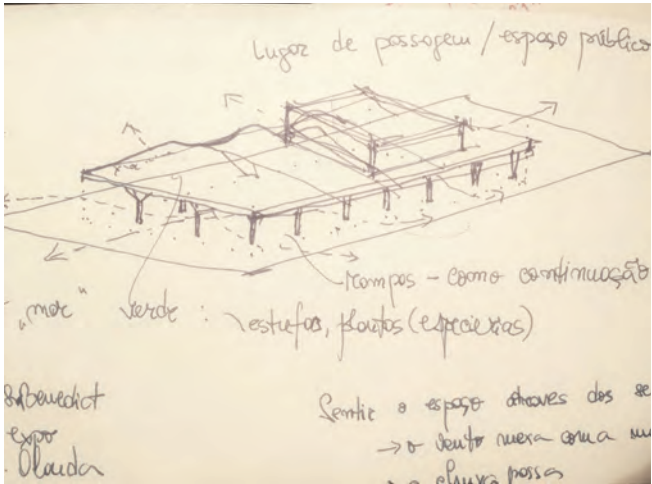 Lugar de passagem / espaço público
Rampas - como continuação
"mar" verde : estufas, plantas (especiarias)
S. Benedict
expo
Olanda
Sentir o espaço através dos se
→ o vento mexa com a
→ a chuva possas